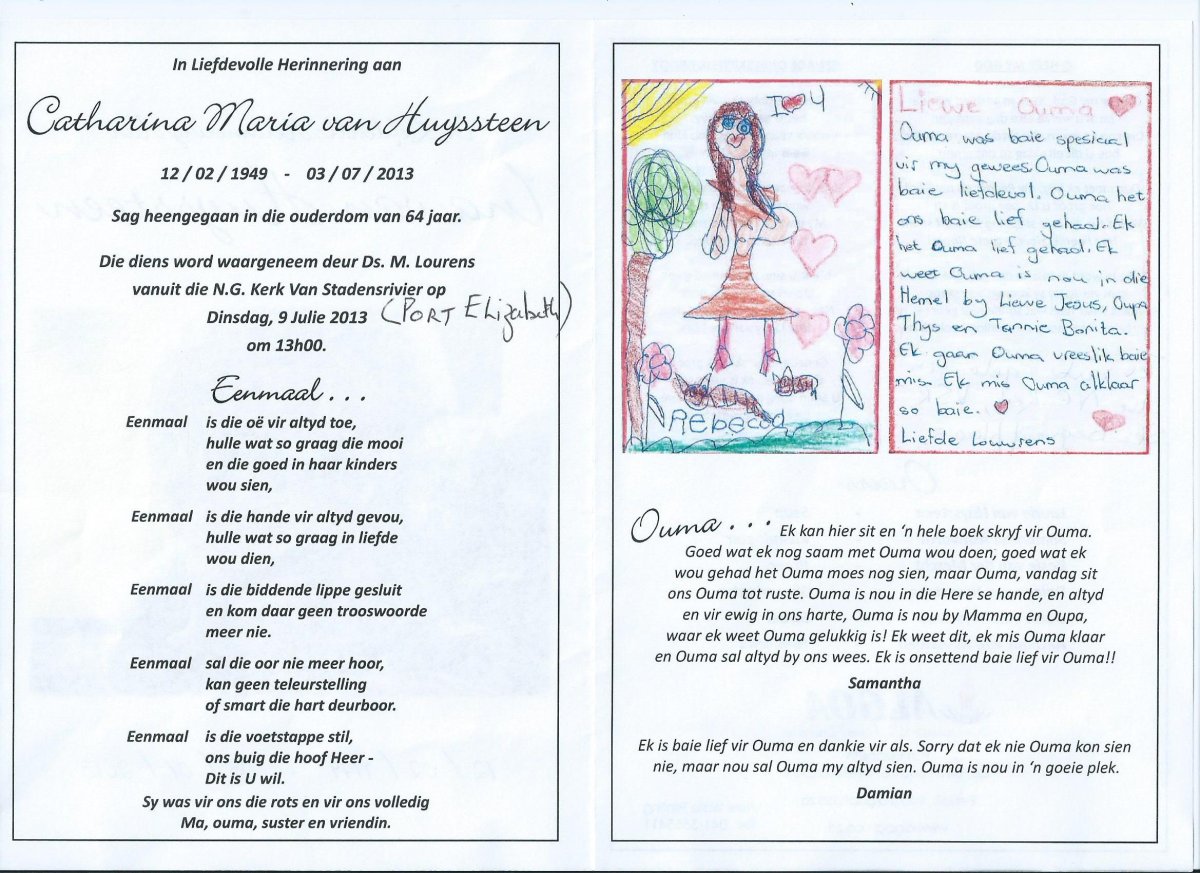 In Liefdevolle Herinnering aan
Catharina Maria van Huyssteen
12 / 02 / 1949 - 03 / 07 / 2013
Sag heengegaan in die ouderdom van 64 jaar.
Die diens word waargeneem deur Ds. M. Lourens
vanuit die N.G. Kerk Van Stadensrivier op
Dinsdag, 9 Julie 2013 (PORT Elizabeth)
om 13h00.
Eenmaal . . .
Eenmaal is die oë vir altyd toe,
hulle wat so graag die mooi
en die goed in haar kinders
wou sien,
Eenmaal is die hande vir altyd gevou,
hulle wat so graag in liefde
wou dien,
Eenmaal is die biddende lippe gesluit
en kom daar geen trooswoorde
meer nie.
Eenmaal sal die oor nie meer hoor,
kan geen teleurstelling
of smart die hart deurboor.
Eenmaal is die voetstappe stil,
ons buig die hoof Heer -
Dit is U wil.
Sy was vir ons die rots en vir ons volledig
Ma, ouma, suster en vriendin.
I ❤ 4
Rebecca
Liewe Ouma
Ouma was baie spesiaal
vir my gewees. Ouma was
baie liefdevol. Ouma het
ons baie lief gehad. Ek
het Ouma lief gehad. Ek
weet Ouma is nou in die
Hemel by Liewe Jesus, Oupa
Thys en Tannie Bonita.
Ek gaan Ouma vreeslik baie
mis. Ek mis Ouma alklaar
so baie.
Liefde Louwrens
Ouma . . . Ek kan hier sit en 'n hele boek skryf vir Ouma.
Goed wat ek nog saam met Ouma wou doen, goed wat ek
wou gehad het Ouma moes nog sien, maar Ouma, vandag sit
ons Ouma tot ruste. Ouma is nou in die Here se hande, en altyd
en vir ewig in ons harte, Ouma is nou by Mamma en Oupa,
waar ek weet Ouma gelukkig is! Ek weet dit, ek mis Ouma klaar
en Ouma sal altyd by ons wees. Ek is onsettend baie lief vir Ouma!!
Samantha
Ek is baie lief vir Ouma en dankie vir als. Sorry dat ek nie Ouma kon sien
nie, maar nou sal Ouma my altyd sien. Ouma is nou in 'n goeie plek.
Damian